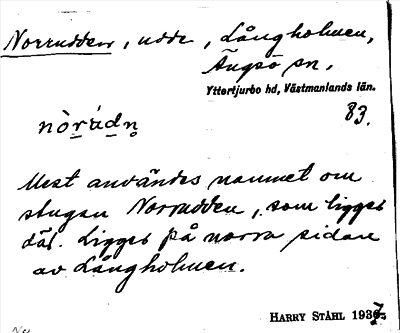 Norrudden, udde, Långholmen,
Ängsö sn.
Yttertjurbo hd, Västmanlands län.
83.
nòrúdn̥
Mest användes namnet om
stugan Norrudden, som ligger
där. Ligger på norra sidan
av Långholmen.
HARRY STÅHL 1937.